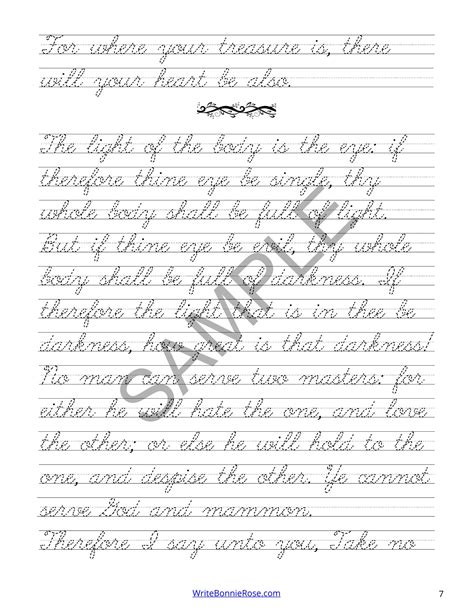 For where your treasure is, there
will your heart be also.
The light of the body is the eye: if
therefore thine eye be single, thy
whole body shall be full of light.
But if thine eye be evil, thy whole
body shall be full of darkness. If
therefore the light that is in thee be
darkness, how great is that darkness!
No man can serve two masters: for
either he will hate the one, and love
the other; or else he will hold to the
one, and despise the other. Ye cannot
serve God and mammon.
Therefore I say unto you, Take no
SAMPLE
WriteBonnieRose.com
7